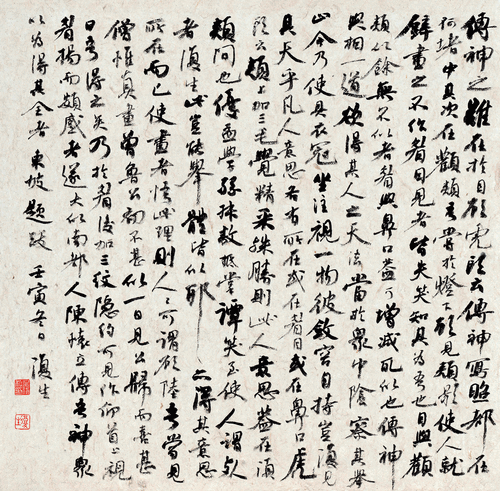 傳神之難在於目顧虎頭云傳神寫照都在
阿堵中其次在顴頰吾嘗於燈下顧見頰影使人就
壁畫之不作眉目見者皆失笑知其為吾也目與顴
頰似餘無不似者眉與鼻口蓋可增減取似也傳神
與相一道欲得其人之天法當於眾中陰察其舉
止今乃使具衣冠坐注視一物彼斂容自持豈復見
其天乎凡人意思各有所在或在眉目或在鼻口虎
頭云頰上加三毛覺精采殊勝則此人意思蓋在須
頰間也優孟學孫叔敖抵掌譚笑至使人謂死
者復生此豈能舉體皆似耶亦得其意思
所在而已使畫者悟此理則人人可謂顧陸吾嘗見
僧惟真畫曾魯公初不甚似一日見公歸而喜甚
曰吾得之矣乃於眉後加三紋隱約可見作仰首上視
眉揚而頞蹙者遂大似南都人陳懷立傳吾神眾
以為得其全者東坡題跋 壬寅冬日 復生